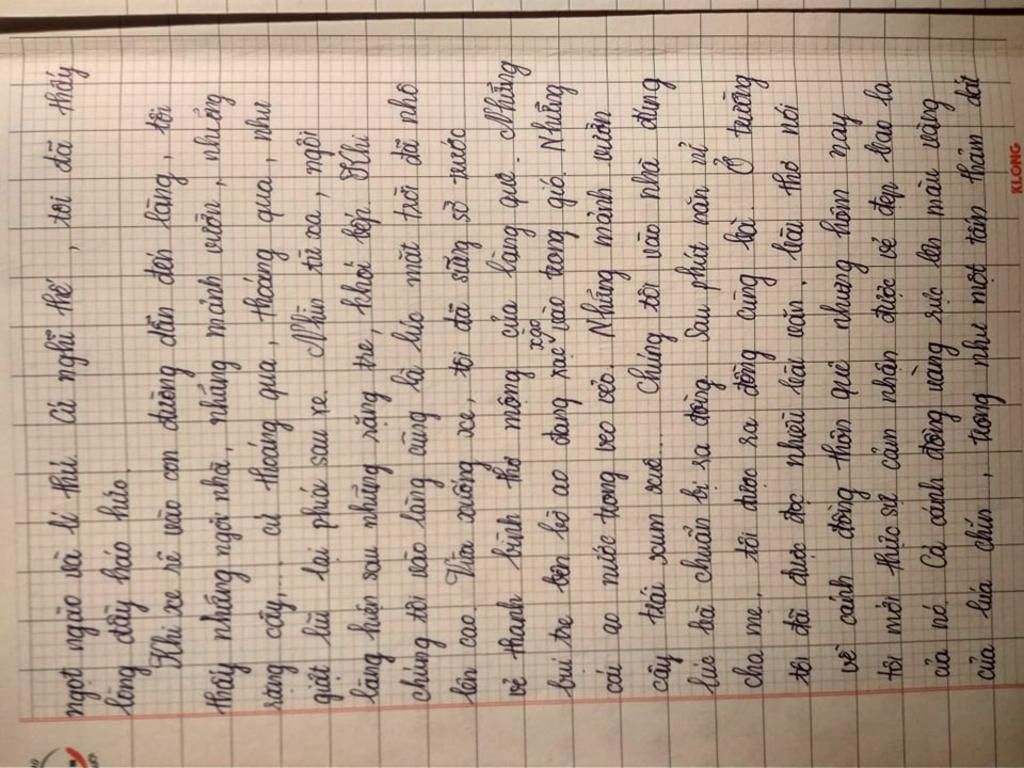 ngọt ngào và lí thú. Cứ nghĩ thế, tôi đã thấy
lòng đầy háo hức.
Khi xe rẽ vào con đường dẫn đến làng, tôi
thấy những ngôi nhà, những mảnh vườn, những
rặng cây,... cứ thoáng qua, thoáng qua, như
giật lùi lại phía sau xe. Nhìn từ xa, ngôi
làng hiện sau những rặng tre, khói bếp. Khi
chúng tôi vào làng cũng là lúc mặt trời đã nhô
lên cao. Vừa xuống xe, tôi đã sững sờ trước
vẻ thanh bình thơ mộng của làng quê. Những
bụi tre bên bờ ao đang xạc xào trong gió. Những
cái ao nước trong veo veo. Những mảnh vườn
cây trái xum xuê... Chúng tôi vào nhà đúng
lúc bà chuẩn bị ra đồng. Sau phút năn nỉ
cha mẹ, tôi được ra đồng cùng bà. Ở trường
tôi đã được đọc nhiều bài văn, bài thơ nói
về cánh đồng thôn quê nhưng hôm nay
tôi mới thực sự cảm nhận được vẻ đẹp bao la
của nó. Cả cánh đồng vàng rực lên màu vàng
của lúa chín, trong như một tấm thảm dát
KLONG